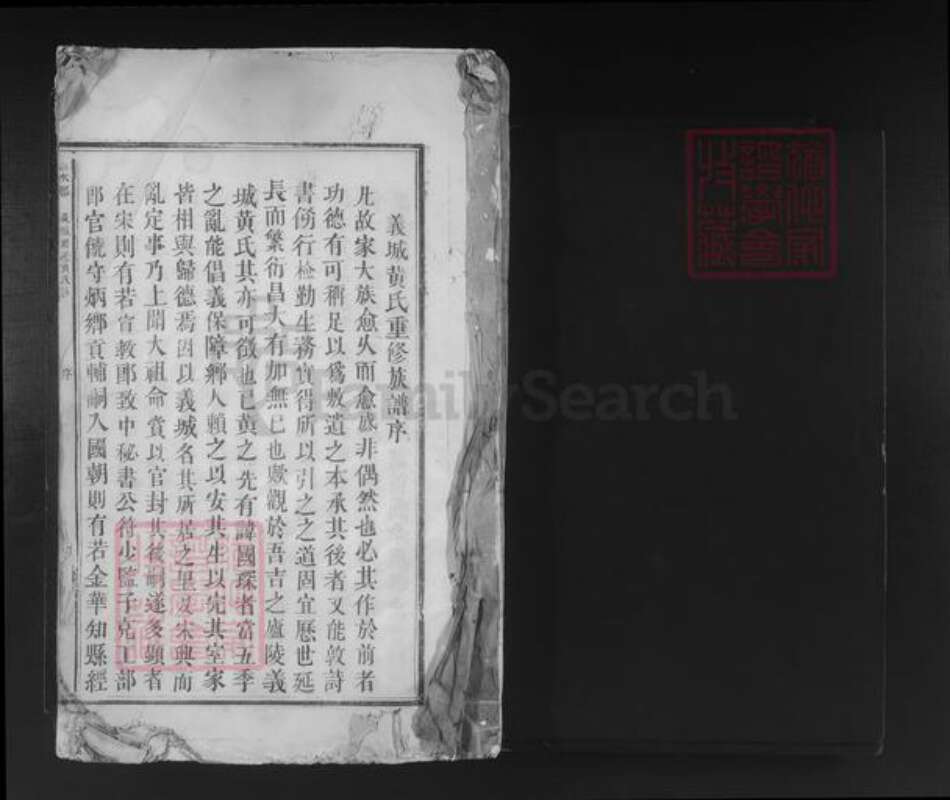 義城黃氏重修族譜序
凡故家大族愈久而愈盛非偶然也必其作於前者
功德有可稱足以為敷遺之本承其後者又能敦詩
書飭行檢勤生務實得所以引之之道固宜歷世延
長而繁衍昌大有加無已也歟觀於吾吉之廬陵義
城黃氏其亦可徵也已黃之先有諱國琛者當五季
之亂能倡義保障鄉人賴之以安其生以完其室家
皆相與歸德焉因以義城名其所居之里及宋興而
亂定事乃上聞大祖命賞以官封其後嗣遂多顯者
在宋則有若宣教郎致中秘書公符少監子克工部
郎官饒守炳鄉貢輔嗣入國朝則有若金華知縣經
序
FamilySearch